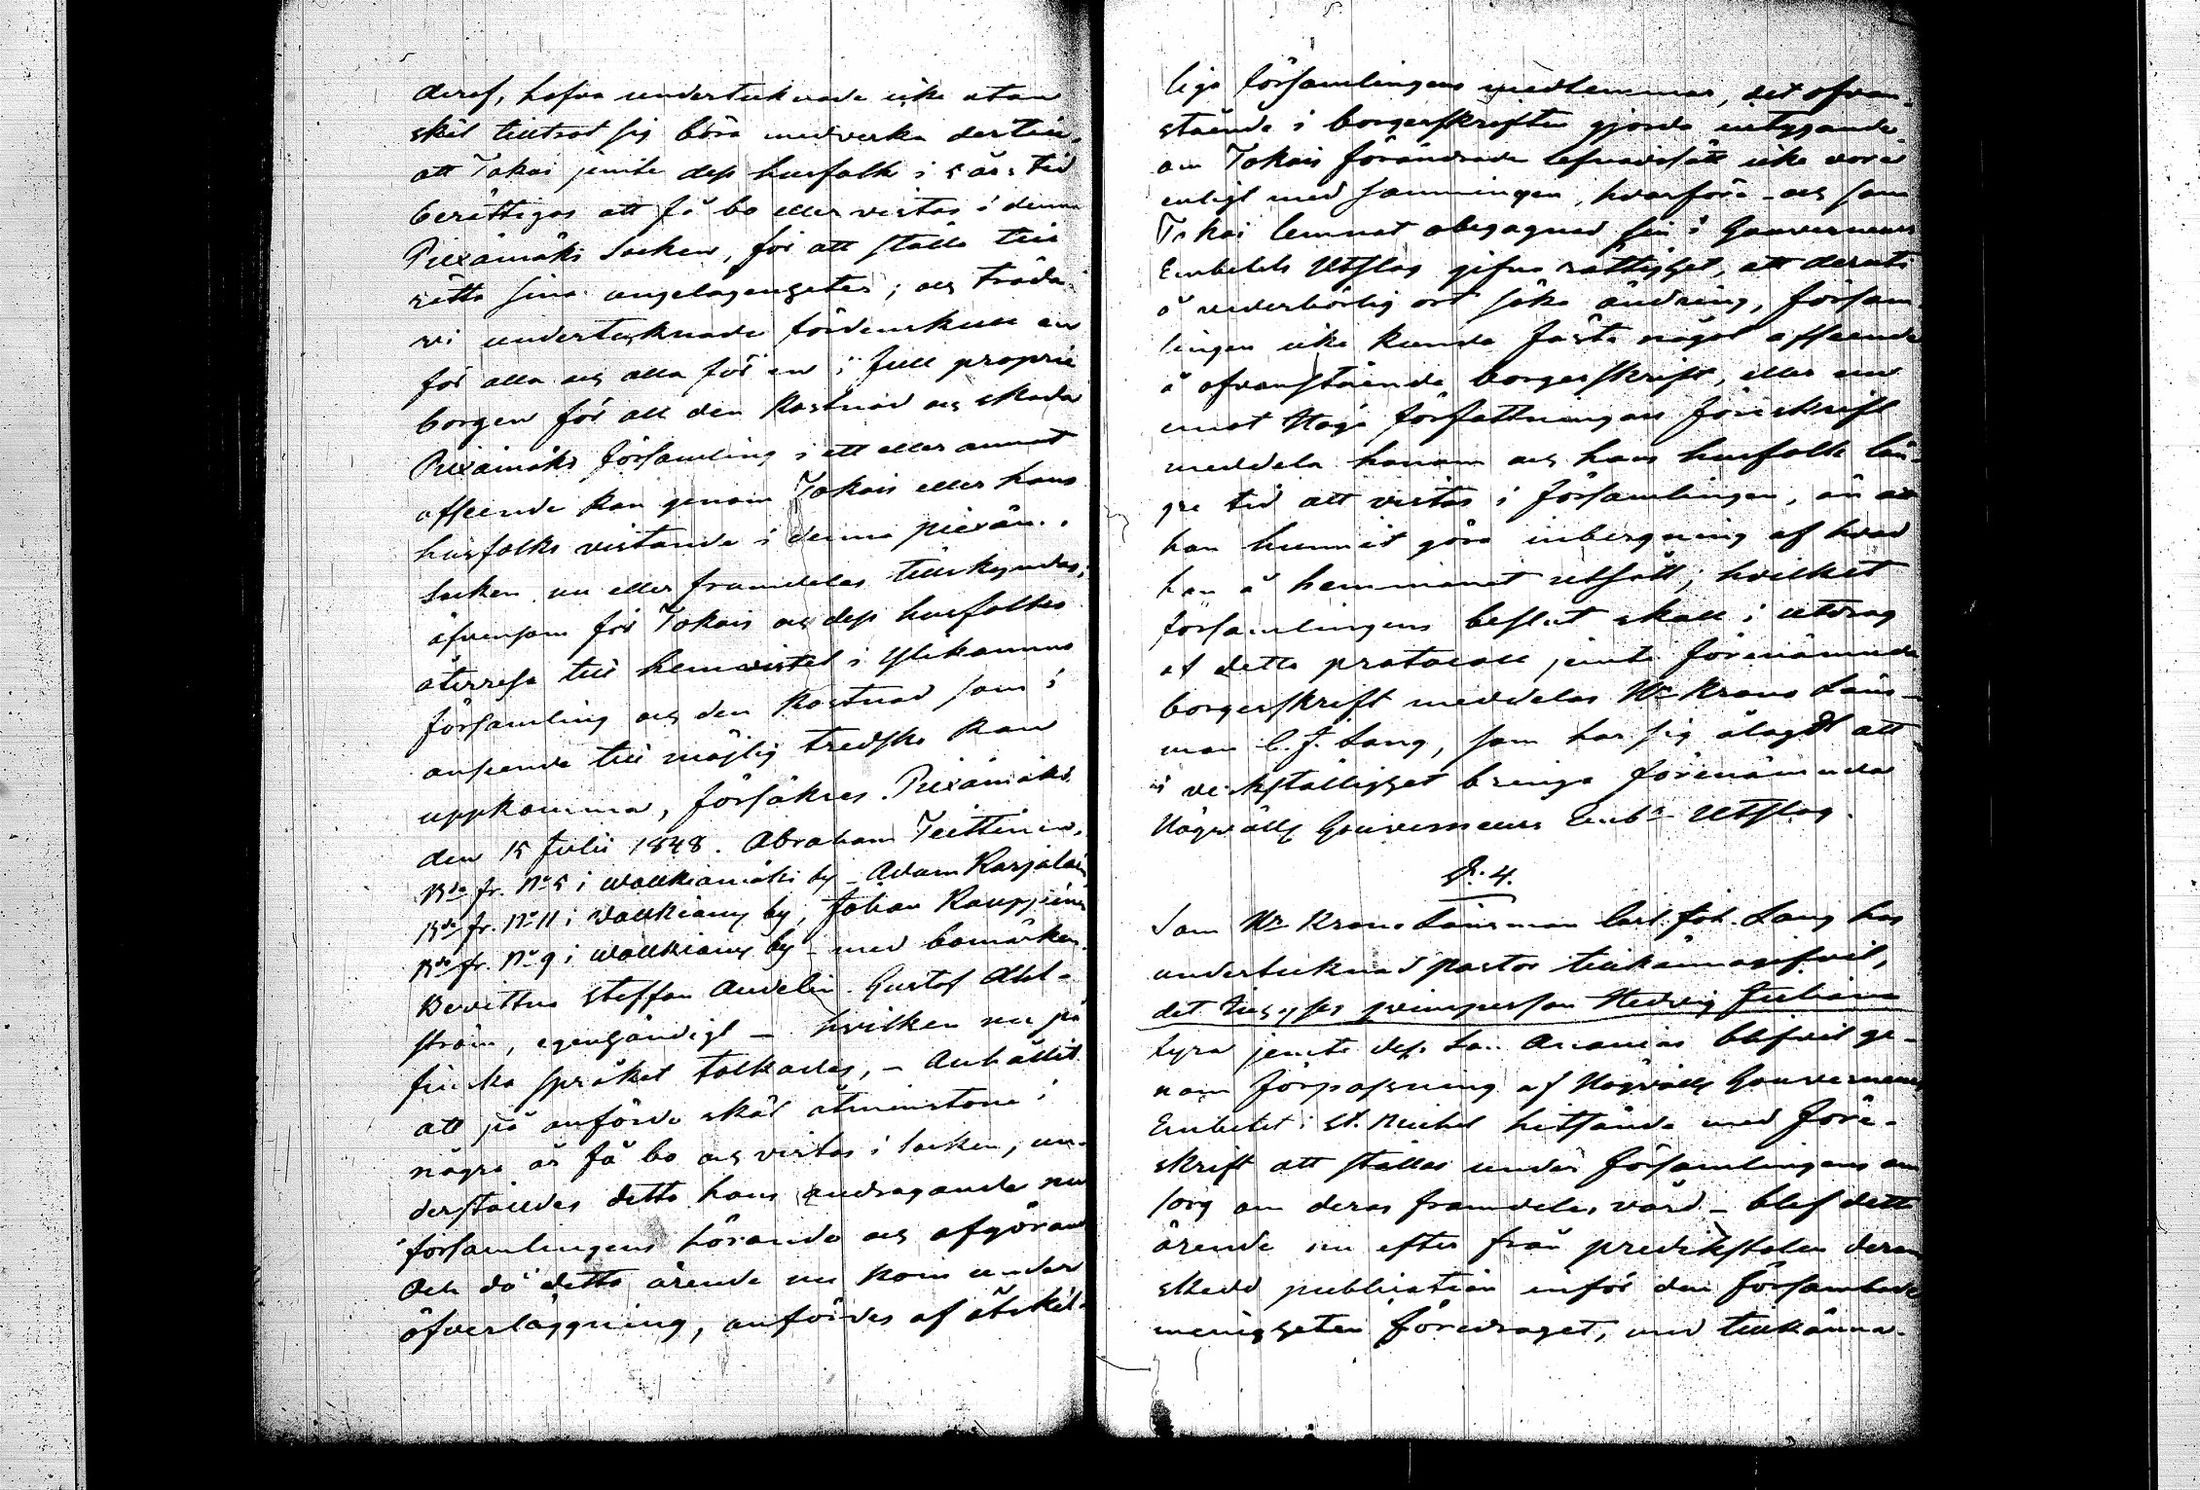 deraf, hafva undertecknade icke utan
skäl tilltrot sig böra medverka dertill,
att Tokoi jemte dess husfolk i 5 års tid
berättigas att få bo eller vistas i denna
Piexämäki Socken, för att ställa till
rätta sina angelägenheter; och träda
vi undertecknade fördenskull en
för alla och alla för en i full proprie
borgen för all den kostnad och skada
Piexämäki församling i ett eller annat
afseende kan genom Tokois eller hans
husfolks vistande i denna piexäm.
Socken nu eller framdeles tillskyndas;
äfvensom för Tokois och dess husfolks
återresa till hemvistet i Ylikannus
församling och den kostnad som i
anseende till möjlig tredska kan
uppkomma, försäkras. Piexämäki
den 15 Julii 1848. Abraham Teittinen,
Bde fr. No 5 i Wallkiamäki by – Adam Karjalain
Bde fr. No 11 i Wallkiamy by, Johan Kauppinen
Bde fr. No 9 i Wallkiamy by – med bomärken.
Bevittna Steffan Audelin. Gustaf Ahl-
ström, egenhändigt – hvilken nu på
finska språket tolkades, – Anhållit
att på anförde skäl åtminstone i
några år få bo och vistas i Socken, un-
derställdes detta hans andragande nu
församlingens hörande och afgörand
Och då detta ärende nu kom under
öfverläggning, anfördes af åtskil-
liga församlingens medlemmar, det ofvan-
stående i borgesskriften gjorda intygande
om Tokois förändrade lefnadssätt icke vore
enligt med sanningen, hvarföre – och som
Tokoi lemnat obegagnad sin i Gouverneurs
Embetets Utslag gifna rättighet, att deruti
å vederbörlig ort söka ändring, försam-
lingen icke kunde fästa något afseende
å ofvanstående borgesskrift, eller en
emot Höga författningars föreskrift
meddela honom och hans husfolk län-
gre tid att vistas i församlingen, än att
han hunnit göra inbergning af hvad
han å hemmanet utsått; hvilket
församlingens beslut skall i utdrag
af detta protocoll jemte förenämnda
borgesskrift meddelas Hr Krono Läns-
man C. J. Lang, som har sig ålagdt att
i verkställighet bringa förenämnda
Högvälb Gouverneurs Emb:s Utslag.
§. 4.
Som Hr Krono Länsman Carl Joh. Lang has
undertecknad pastor tillkännagifvit,
det qvinsperson Hedvig Juliana
Lyra jemte dess Son Ananias blifvit ge-
nom förpassning af Högvälb Gouverneurs
Embetet i St. Michel hitsände med före-
skrift att ställas under församlingens om
sorg om deras framdeles vård – blef detta
ärende nu efter från predikstolen derom
skedd publication inför den församlade
menigheten föredraget, med tillkänna-